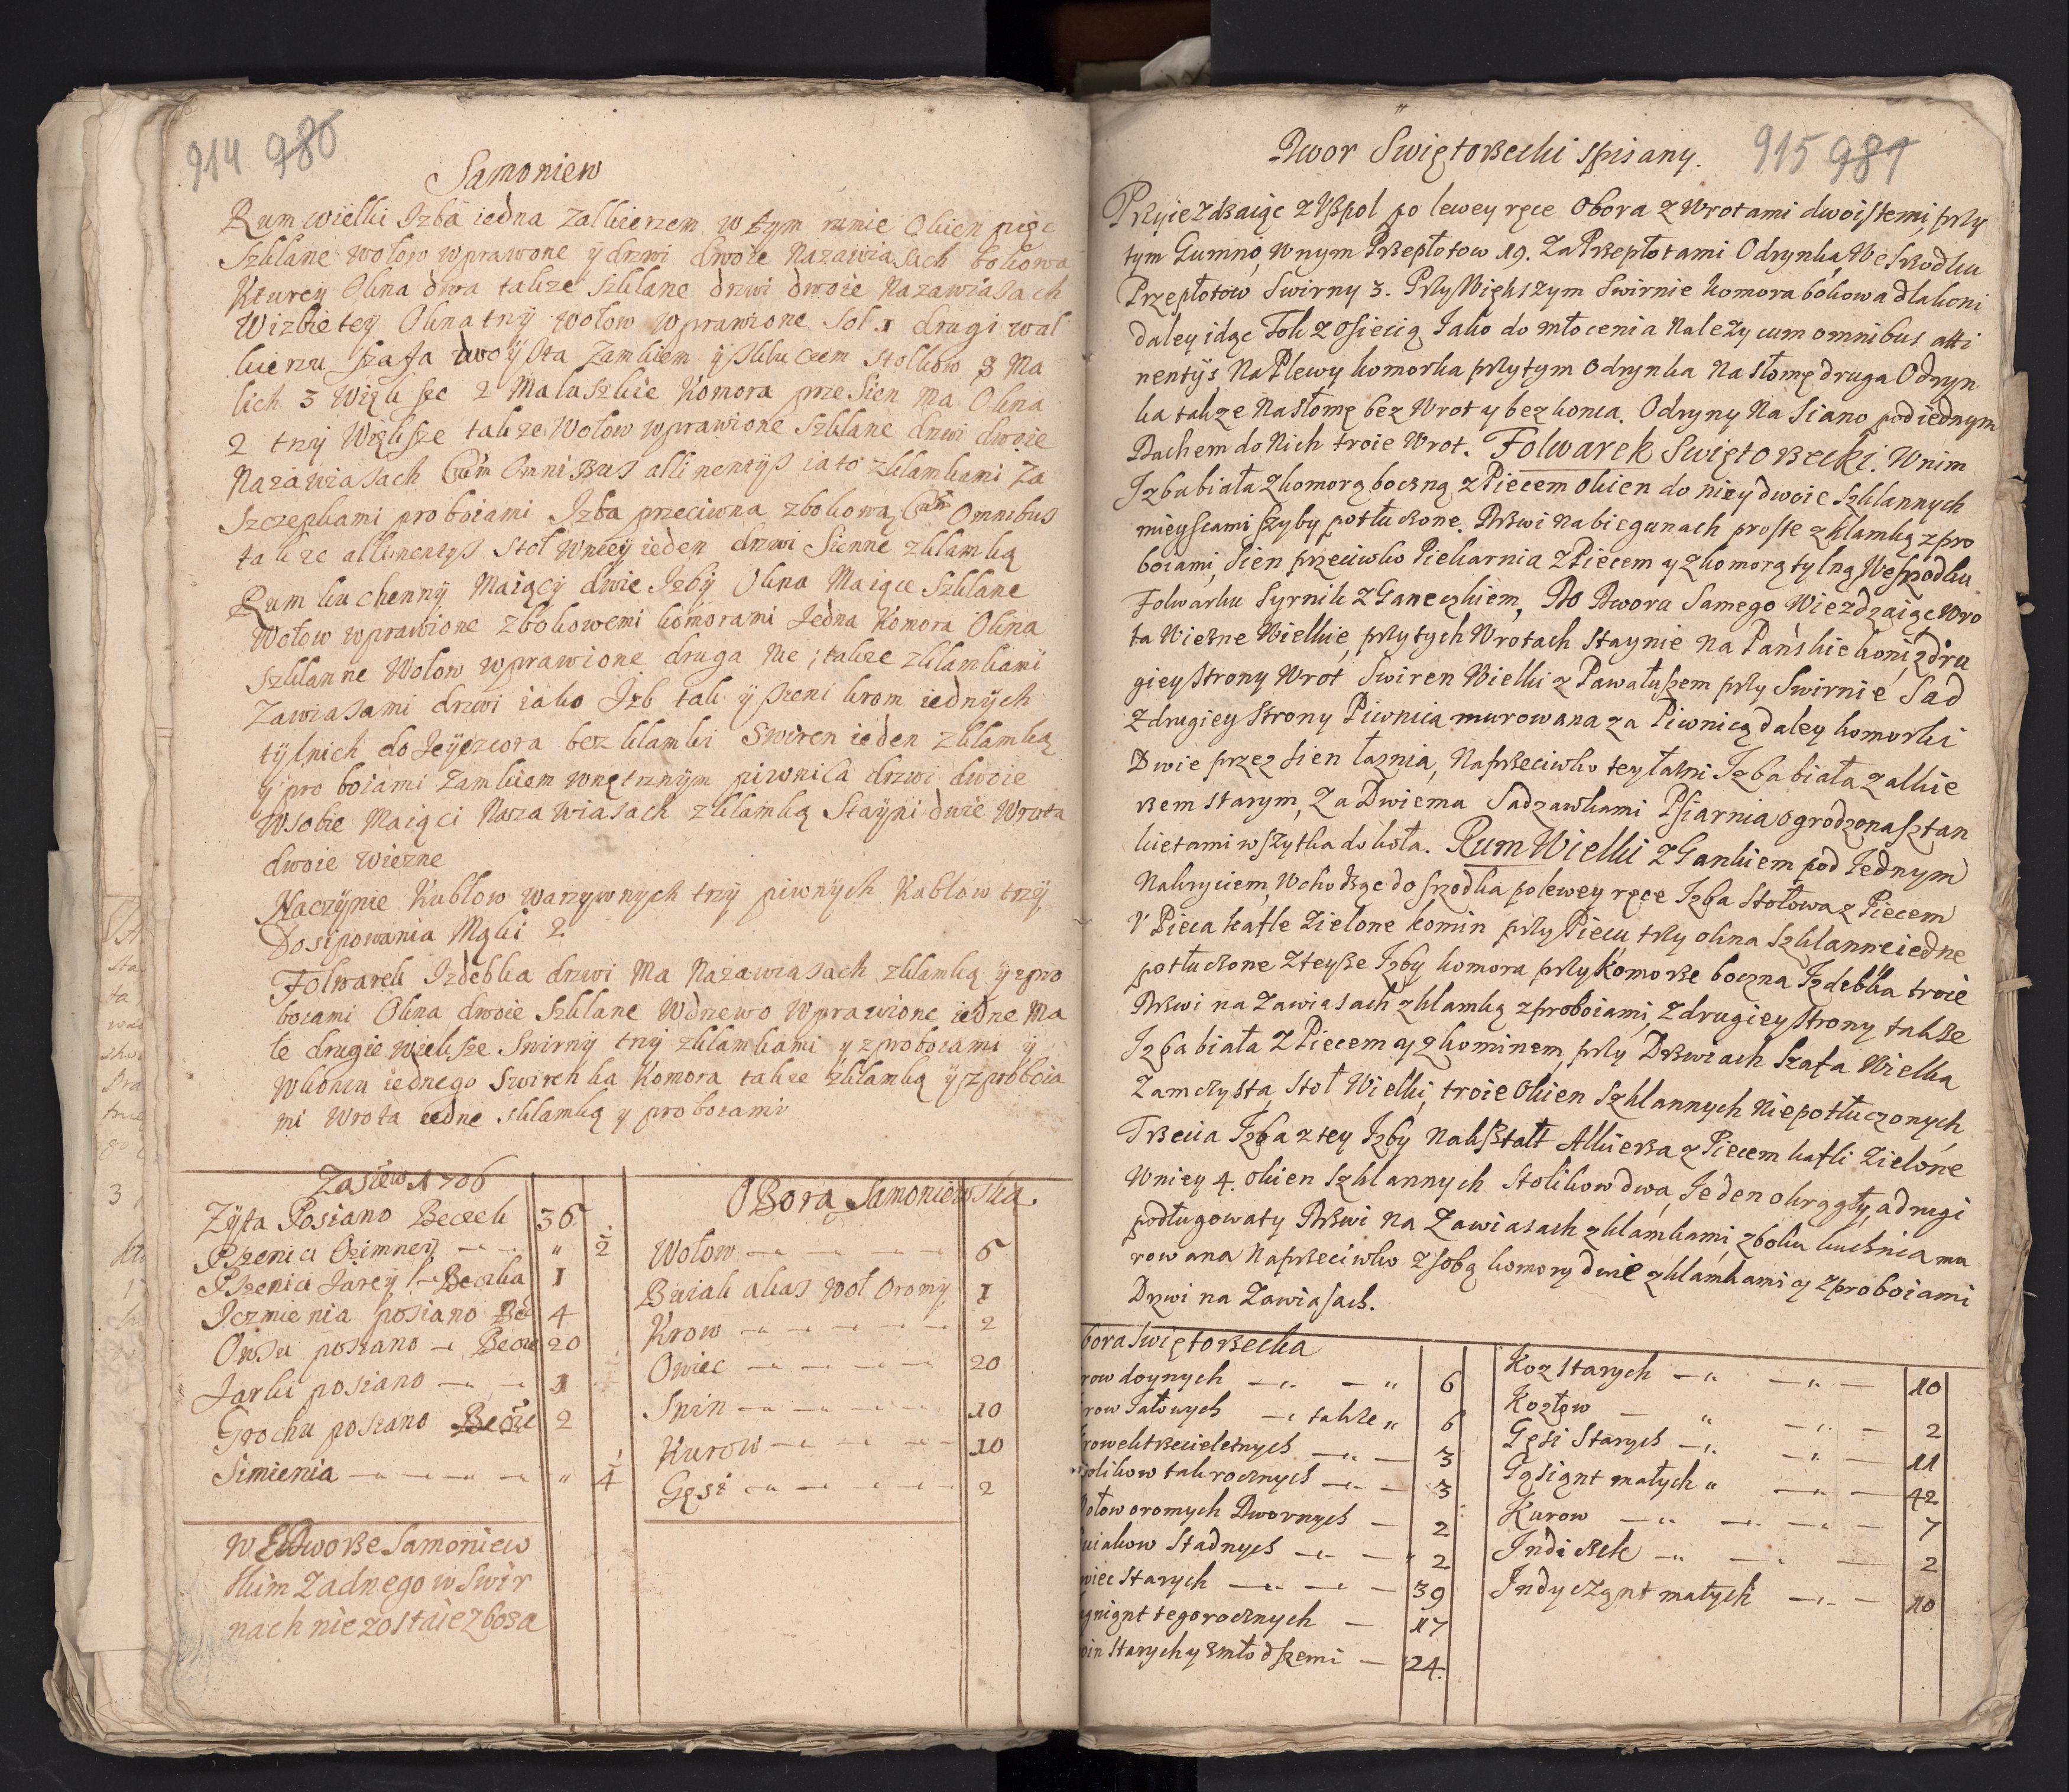 914 980
Samoniew
Rum wielki Izba iedna Zalkierzem w tym rumie Okien pięc
Szklane wołow wprawone ÿ drzwi dwoie Nazawiasach bokowa
Kturey Okna dwa takze szklane drzwi dwoie Nazawiasach
Wizbie teÿ Okna trzÿ wołow wprawione Sol 1 drugi wal
kierzu szafa dwoÿsta Zamkiem ÿ kluczem stolkow 3 Ma
lich 3 Większe 2 Maluszkie Komora prze Sien ma Okna
2 trzÿ Większe takze Wołow wprawione Szklane drzwi dwoie
Nazawiasach Cum Omnibus attinentÿs iato zklamkami Za
Szczepkami proboiami Izba przeciwna zbokową Cum Omnibus
takze attinentÿs Stoł Wnieÿ ieden drzwi Sienne zklamką
Rum kuchennÿ Maiącÿ dwie Izbÿ Okna Maiące Szklane
Wołow wprawione zbokowemi komorami Jedna Komora Okna
Szklanne Wołow wprawione druga Nie; takze zklamkami
Zawiasami drzwi iako Izb tak ÿ sieni krom iednÿch
tÿlnich do Jeÿeziora bez klamki Swiren ieden zklamką
ÿ pro boiami Zamkiem wnętrznÿm piwnica drzwi dwoie
Wsobie Maiąci Nazawiasach zklamką Staÿni dwie Wrota
dwoie Wiezne
Naczÿnie Kublow warzywnych trzÿ piwnÿch Kublow trzÿ
Dosipowania Mąki 2
Folwarek Izdebka drzwi Ma Nazawiasach zklamką ÿ zpro
boiami Okna dwoie Szklane Wdrzewo Wprawione iedne Ma
łe drugie większe Swirnÿ trzÿ zklamkami ÿ zproboiami ÿ
Wkoncu iednego Swirenka Komora takze zklamką ÿ zproboia
mi Wrota iedne sklamką y proboiami
Zasiew 1706
Zÿta Posiano Beczek 36
Pszenici Ozimneÿ " 1/2
Pszenici Jareÿ Beczka 1
Jczmienia posiano Bec 4
Owsu posiano Becze 20
Jarki posiano 1
Grochu posiano Becze 2
Simienia " 1/4
W Dworze Samoniew
skim Zadnego w Swir
nach nie zostaie zboza
Obora Samoniowska.
Wołow 6
Buiak alias Woł oromy 1
Krow 2
Owiec 20
Swin 10
Kurow 10
Gęsi 2
915 981
Dwor Swiętorzecki spisany.
Przyiezdzaiąc z Uspol po lewey ręce Obora z Wrotami dwoistemi, przy
tym Gumno, w nym Przepłotow 19. Za Przepłotami Odrynka, We srzodku
Przepłotow Swirny 3. Przy Większym Swirnie komora bokowa dla koni
daley idąc Tok z osiecią Jako do młocenia Należy cum omnibus atti
nentÿs Na Plewy komorka przytym odrynka na słomę druga Odryn
ka takze Na słomę bez Wrot y bez konca. Odryny Na Siano pod iednym
Dachem do Nich troie Wrot. Folwarek Swiętorzecki. W nim
Izba biała z komorą boczną z Piecem okien do niey dwoie Szklannych
mieyscami szyby potłuczone. Drzwi na biegunach proste z klamką z pro
boiami, Sien przeciwko Piekarnia z Piecem y z komorą tylną We srzodku
Folwarku Syrnik z Ganeczkiem, Do Dworu Samego Wiezdzaiąc Wro
ta Wiezne Wielkie, przy tych Wrotach Staynie na Panskie koni, z dru
giey strony Wrot Swiren Wielki z Pawałuszem przy Swirnie Sad
z drugiey Strony Piwnica murowana za Piwnicą daley komorki
Dwie przez sien łaznia, Naprzeciwko tey łazni Izba biała z alkie
rzem starym, Za Dwiema Sadzawkami Psiarnia ogrodzona sztan
kietami wszytka dokoła. Rum Wielki z Gankiem pod Jednym
Nakryciem, Wchodząc do srzodka po lewey ręce Izba Stołowa z Piecem
V Pieca kafle zielone komin przy Piecu, trzy okna szklanne iedne
potłuczone z teyze Izby komora przy komorze boczna Izdebka troie
Drzwi na zawiasach z klamką z proboiami, z drugiey strony takze
Izba biała z Piecem y z kominem, przy Drzwiach szafa Wielka
Zamczysta, Stoł Wielki, troie okien szklannych Niepotłuczonych
Trzecia Izba z tey Izby na kształt Alkierza z Piecem kafli zielone
W niey 4. okien szklannych Stolikow dwa, Jeden okrągły, a drugi
podługowaty Drzwi na Zawiasach z klamkami, z boku kuchnia mu
rowana Naprzeciwko z sobą komory dwie z klamkami y z proboiami
Drzwi na Zawiasach.
bora Swiętorzecka
row doynych 6
row Jałowych takze 6
rowek trzecieletnych 3
olikow takrocznych 3
ołow oromych Dwornych 2
uiakow Stadnych 2
wiec Starych 39
agniąnt tegorocznych 17
win Starych y zmłodszemi 24.
Koz starych 10
Kozłow 2
Gęsi Starych 11
Gąsiąnt małych 42
Kurow 7
Indiczek 2
Indycząnt małych 10